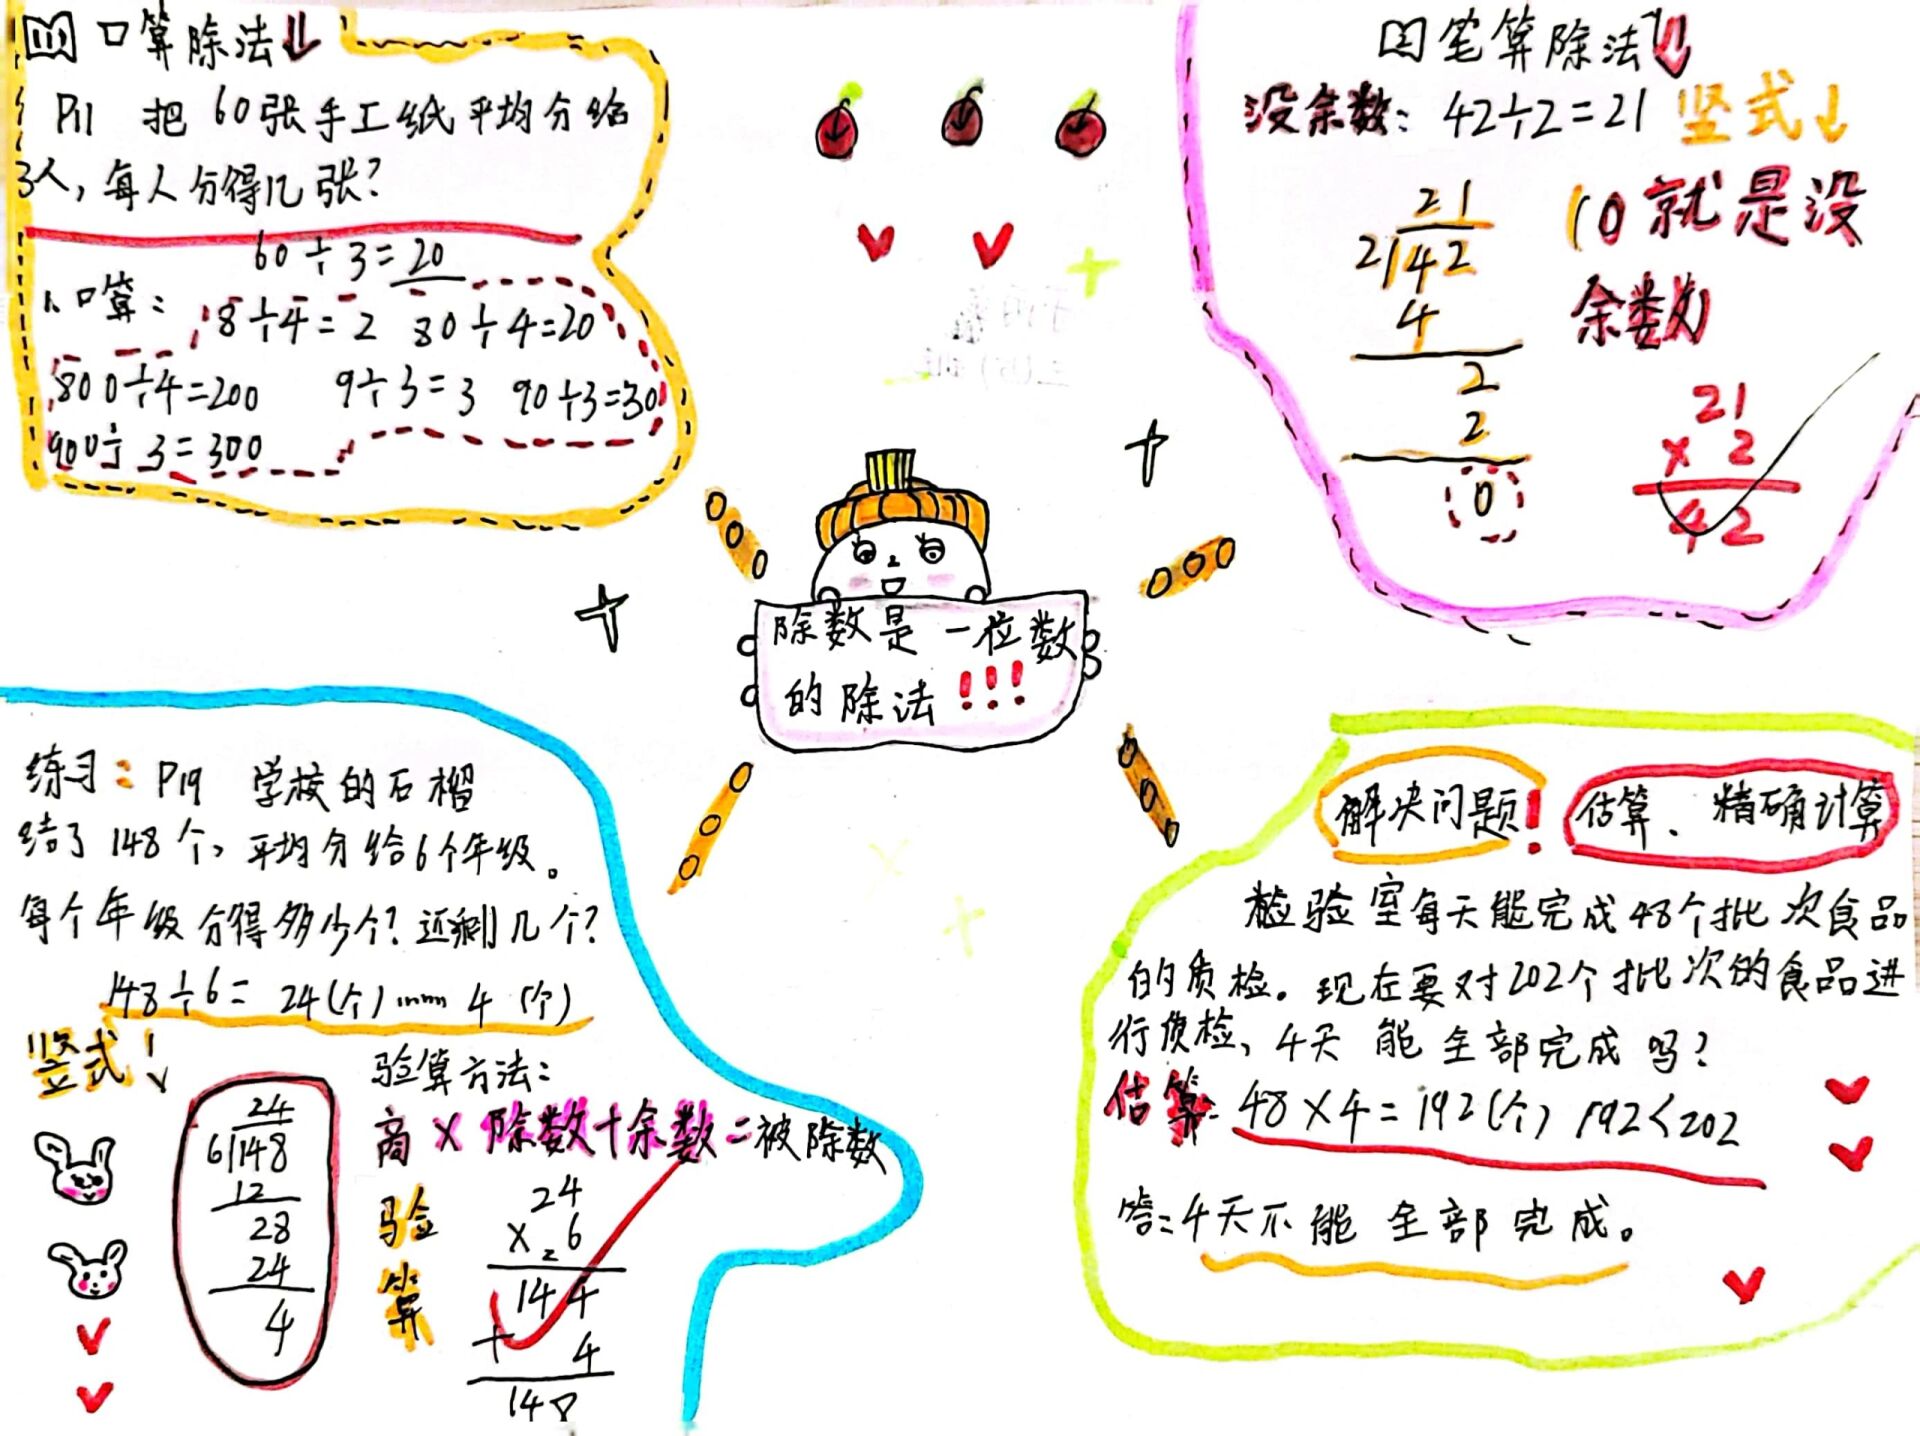 口算除法
P11 把60张手工纸平均分给
3人，每人分得几张？
60÷3=20
1.口算：
8÷4=2 80÷4=20
800÷4=200 9÷3=3 90÷3=30
900÷3=300
笔算除法
没余数：42÷2=21 竖式
21
2 42
4
2
2
0
(0就是没
余数)
21
× 2
42
除数是一位数
的除法!!!
练习：P19 学校的石榴
结了148个，平均分给6个年级。
每个年级分得多少个？还剩几个？
148÷6=24(个)……4(个)
竖式
24
6 148
12
28
24
4
验算方法：
商×除数+余数=被除数
验算
24
× 6
2
144
+ 4
148
解决问题! 估算、精确计算
检验室每天能完成48个批次食品
的质检。现在要对202个批次的食品进
行质检，4天能全部完成吗？
估算：48×4=192(个) 192<202
答：4天不能全部完成。